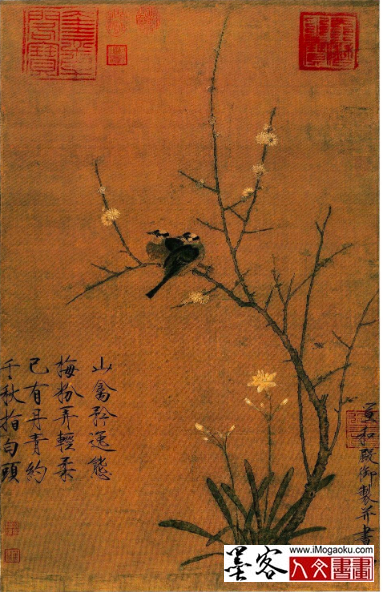 宣和殿御製并書
山禽矜逸態
梅粉弄輕柔
已有丹青約
千秋指白頭
墨客
www.iMogaoku.com
人文書畫